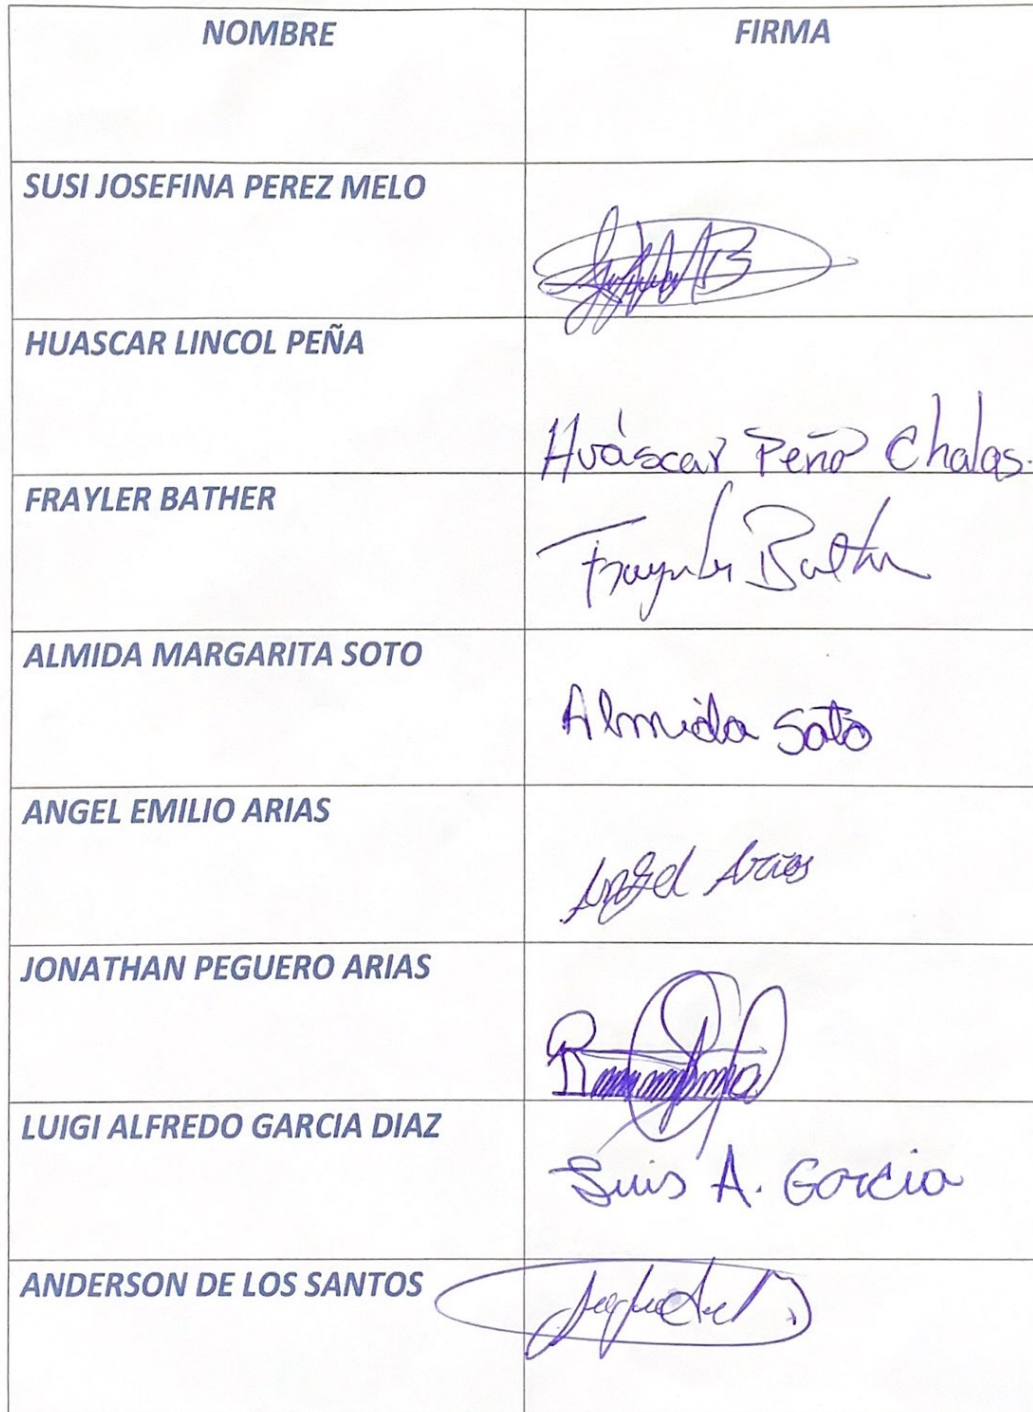 NOMBRE FIRMA
SUSI JOSEFINA PEREZ MELO
HUASCAR LINCOL PEÑA
Huáscar Peña Chalas.
FRAYLER BATHER
Frayler Bather
ALMIDA MARGARITA SOTO
Almida Soto
ANGEL EMILIO ARIAS
Angel Arias
JONATHAN PEGUERO ARIAS
LUIGI ALFREDO GARCIA DIAZ
Luis A. Garcia
ANDERSON DE LOS SANTOS